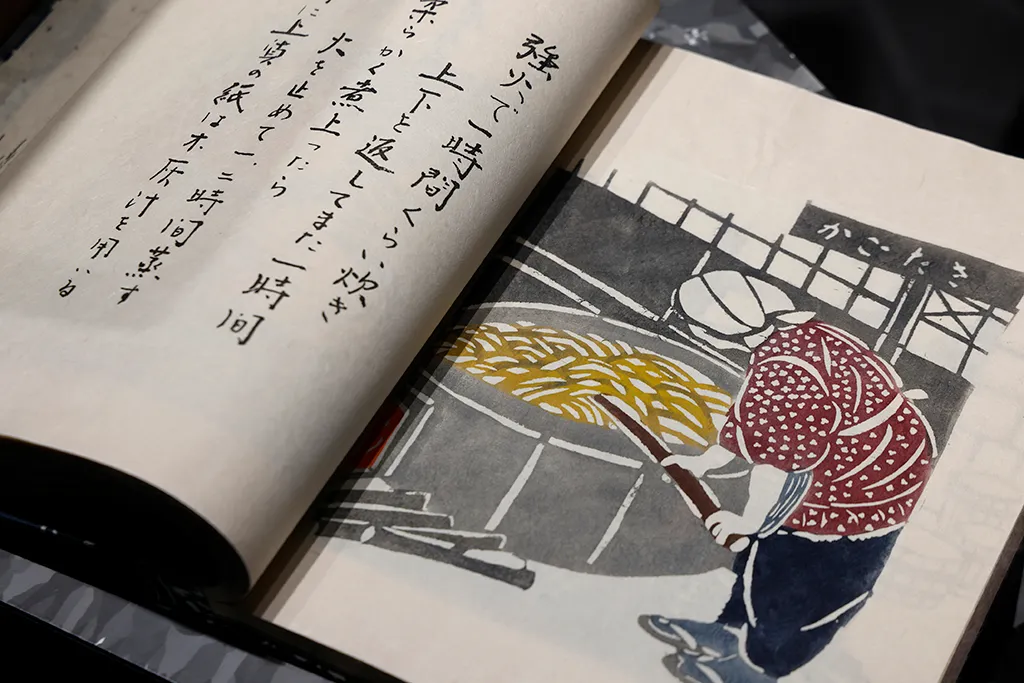 強火で一時間くらい炊き
上下を返してまた一時間
柔らかく煮上ったら
火を止めて一、二時間蒸す
に上質の紙は木灰汁を用いる
かごたき